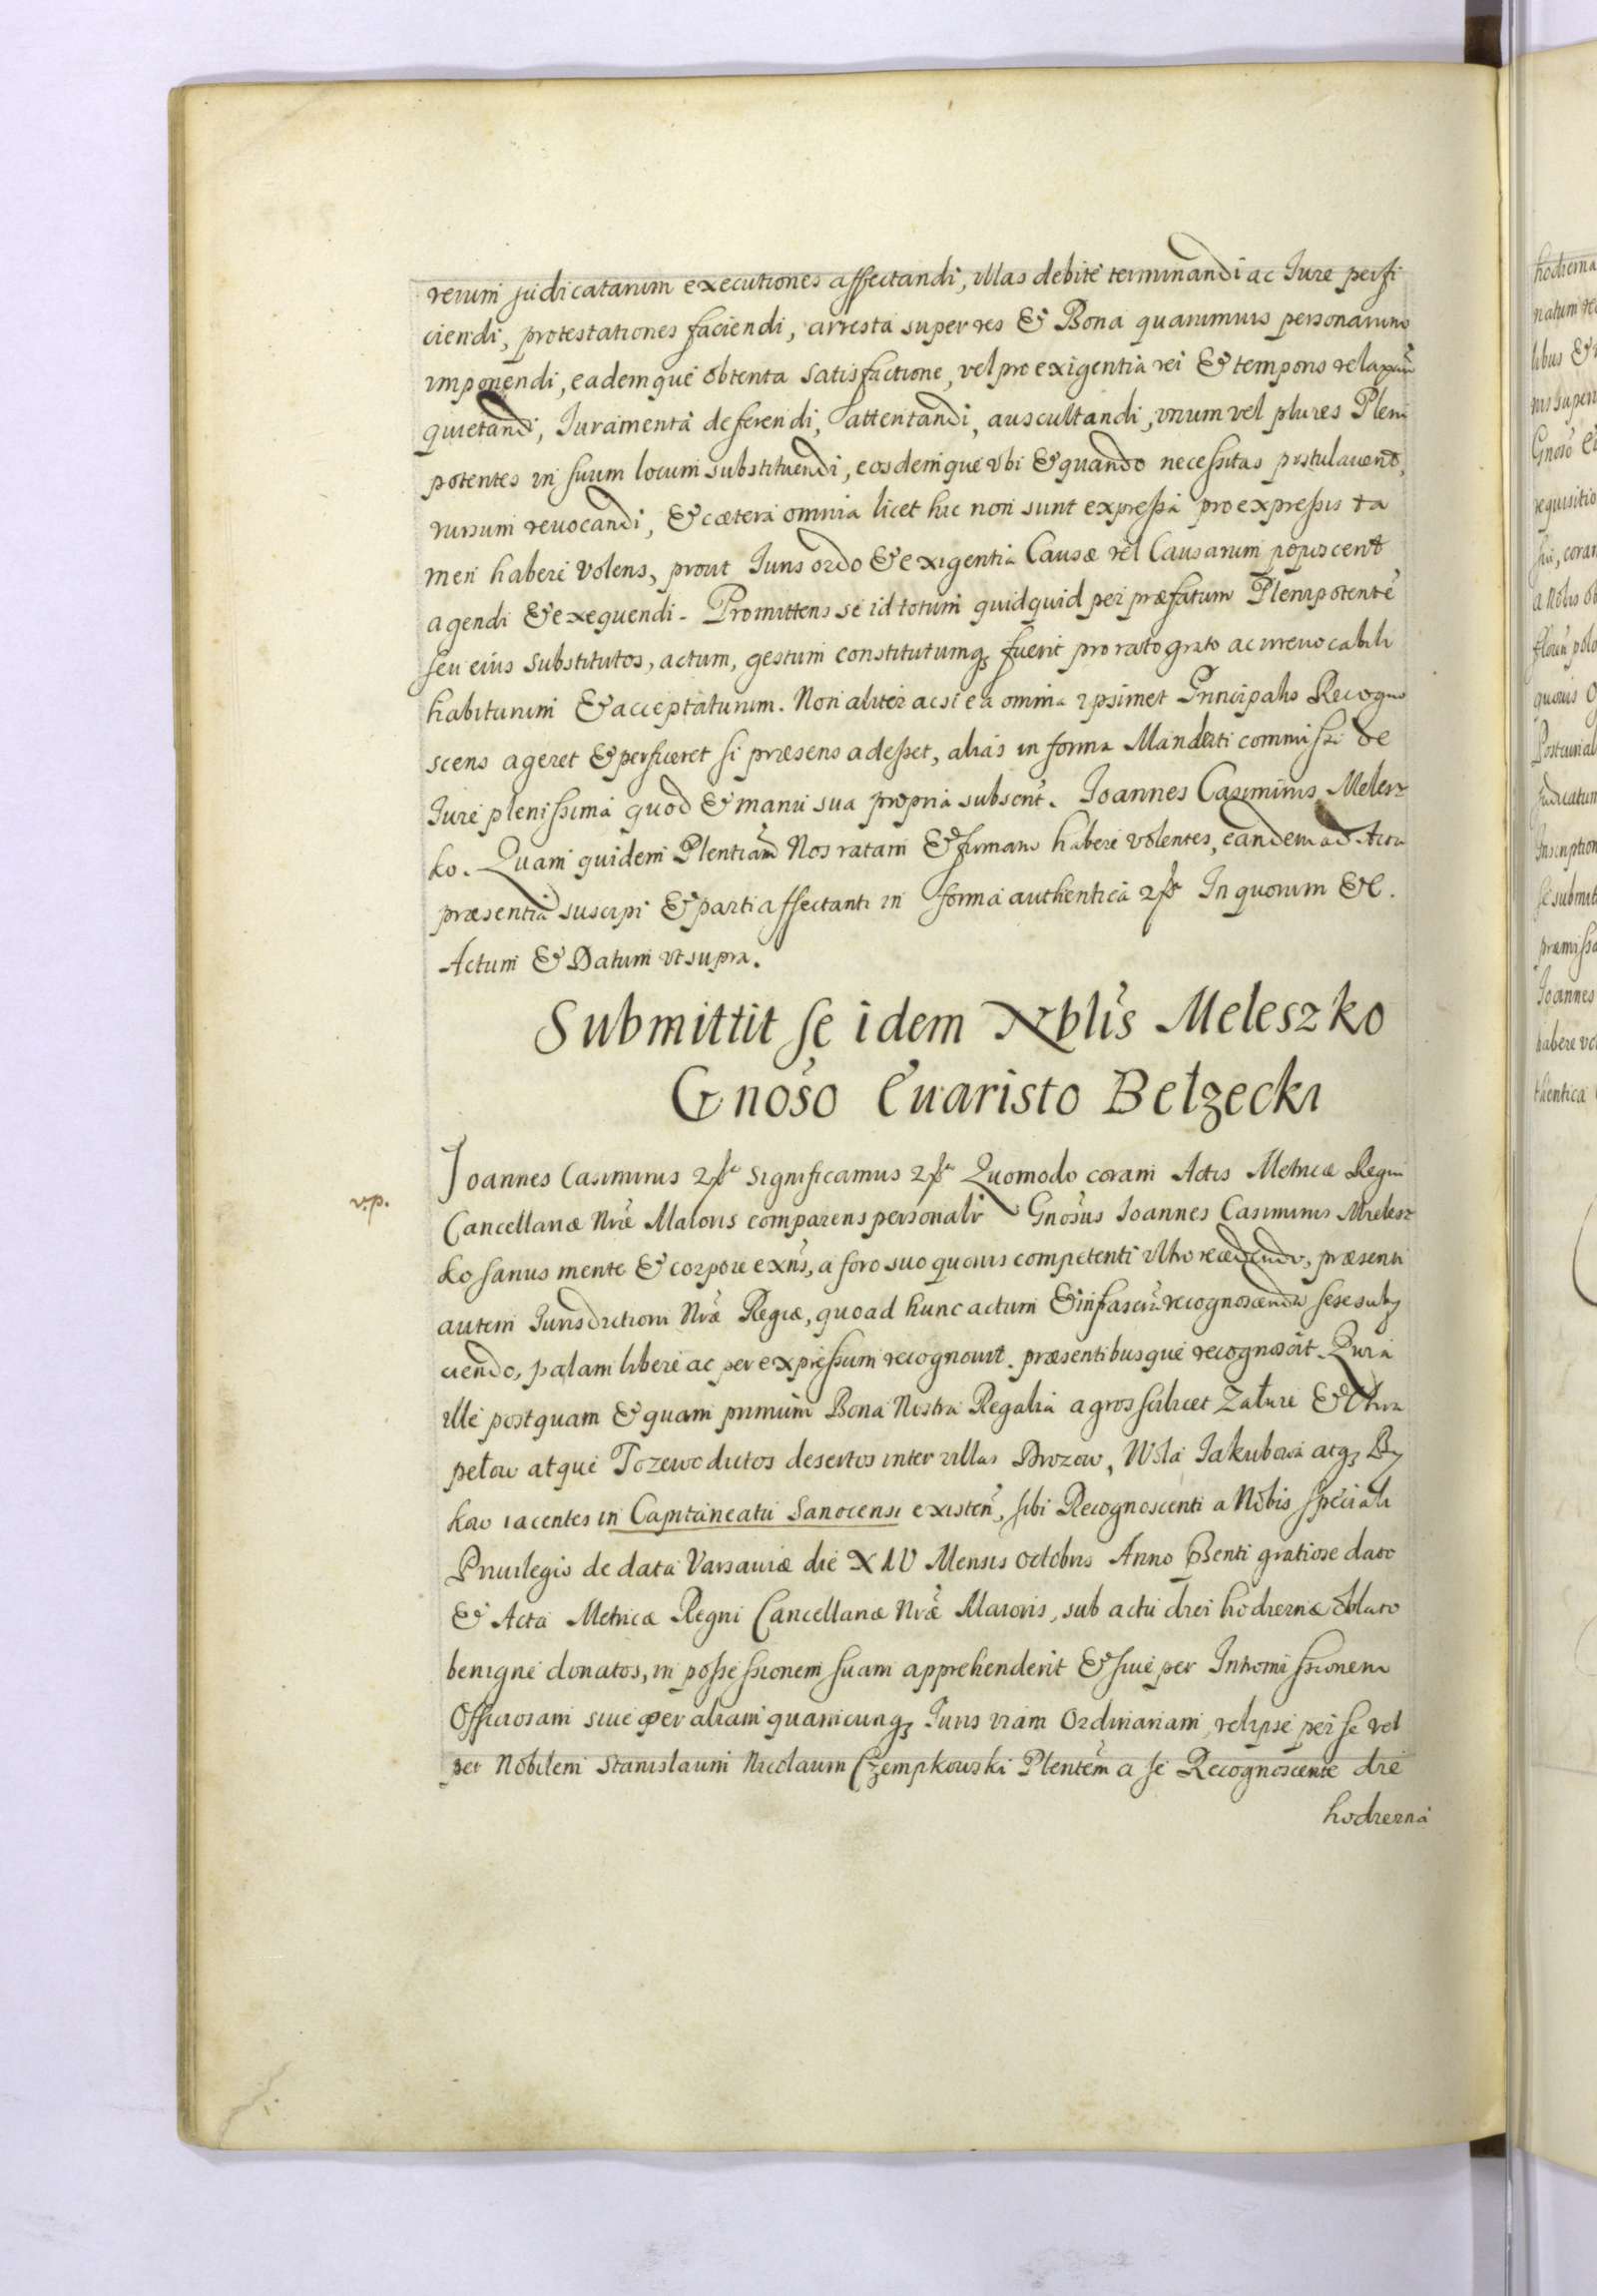 rerum judicatarum executiones affectandi, illas debitè terminandi ac Jure perfi
ciendi, protestationes faciendi, arresta super res & Bona quarumuis personarum
imponendi, eademque obtenta satisfactione, vel pro exigentia rei & temporis relaxan̄
quietandi, Juramenta deferendi, attentandi, auscultandi, vnum vel plures Pleni
potentes in suum locum substituendi, eosdemque vbi & quando necessitas postulauerit,
rursum reuocandi, & cætera omnia licet hic non sunt expressa pro expressis ta
men haberi volens, prout Juris ordo & exigentia Causæ vel Causarum poposcerit
agendi & exequendi. Promittens se id totum quidquid per præfatum Plenipotentē
seu eius substitutos, actum, gestum constitutumq3 fuerit pro rato grato ac irreuocabili
habiturum & acceptaturum. Non aliter ac si ea omnia ipsimet Principalis Recogno
scens ageret & perficeret si præsens adesset, alias in forma Mandati commissi de
Jure plenissima quod & manu sua propria subscrit. Joannes Casimirus Melesz
ko. Quam quidem Plentiam Nos ratam & firmam habere volentes, eandem ad Acta
præsentia suscipi & parti affectanti in forma authentica In quorum &c.
Actum & Datum vt supra.
Submittit se idem Nblis Meleszko
Gnoso Euaristo Bełzecki
Joannes Casimirus Significamus Quomodo coram Actis Metricæ Regni
v.p.
Cancellariæ Nræ Maioris comparens personalr Gnosus Joannes Casimirus Mielesz
ko sanus mente & corpore exn̄s, a foro suo quouis competenti vltro recedendo, præsenti
autem Jurisdictioni Nræ Regiæ, quoad hunc actum & infrascr̄ recognoscenda sese subij
ciendo, palam liberè ac per expressum recognouit. præsentibusque recognoscit. Quia
ille postquam & quam primum Bona Nostra Regalia agros scilicet Załuze &
pełow atque Tozewo dictos desertos inter villas Drozow, Wola Jakubowa atq3 By
kow iacentes in Capitaneatu Sanocensi existen̄, sibi Recognoscenti a Nobis speciali
Priuilegio de data Varsauiæ die XIV Mensis Octobris Anno Psenti gratiose dato
& Acta Metricæ Regni Cancellariæ Nræ Maioris, sub actu diei hodiernæ oblato
benigne donatos, in possessionem suam apprehenderit & siue per Intromissionem
Officiosam siue per aliam quamcunq3 Juris viam Ordinariam, vel ipse per se vel
per Nobilem Stanislaum Nicolaum Czempkowski Plentem a se Recognoscente die
hodierna